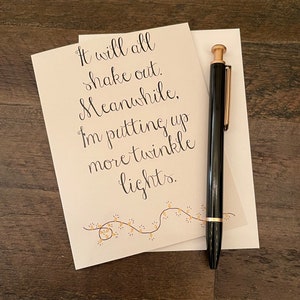 It will all
shake out.
Meanwhile,
I'm putting up
more twinkle
lights.